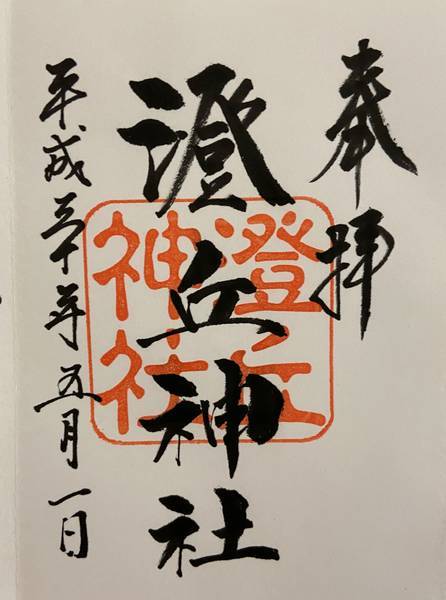 奉拝
澄丘神社
平成三十年五月一日
澄丘
神社